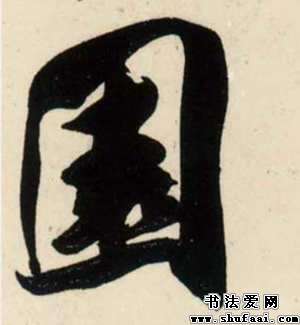 園
书法爱网
www.shufaai.com